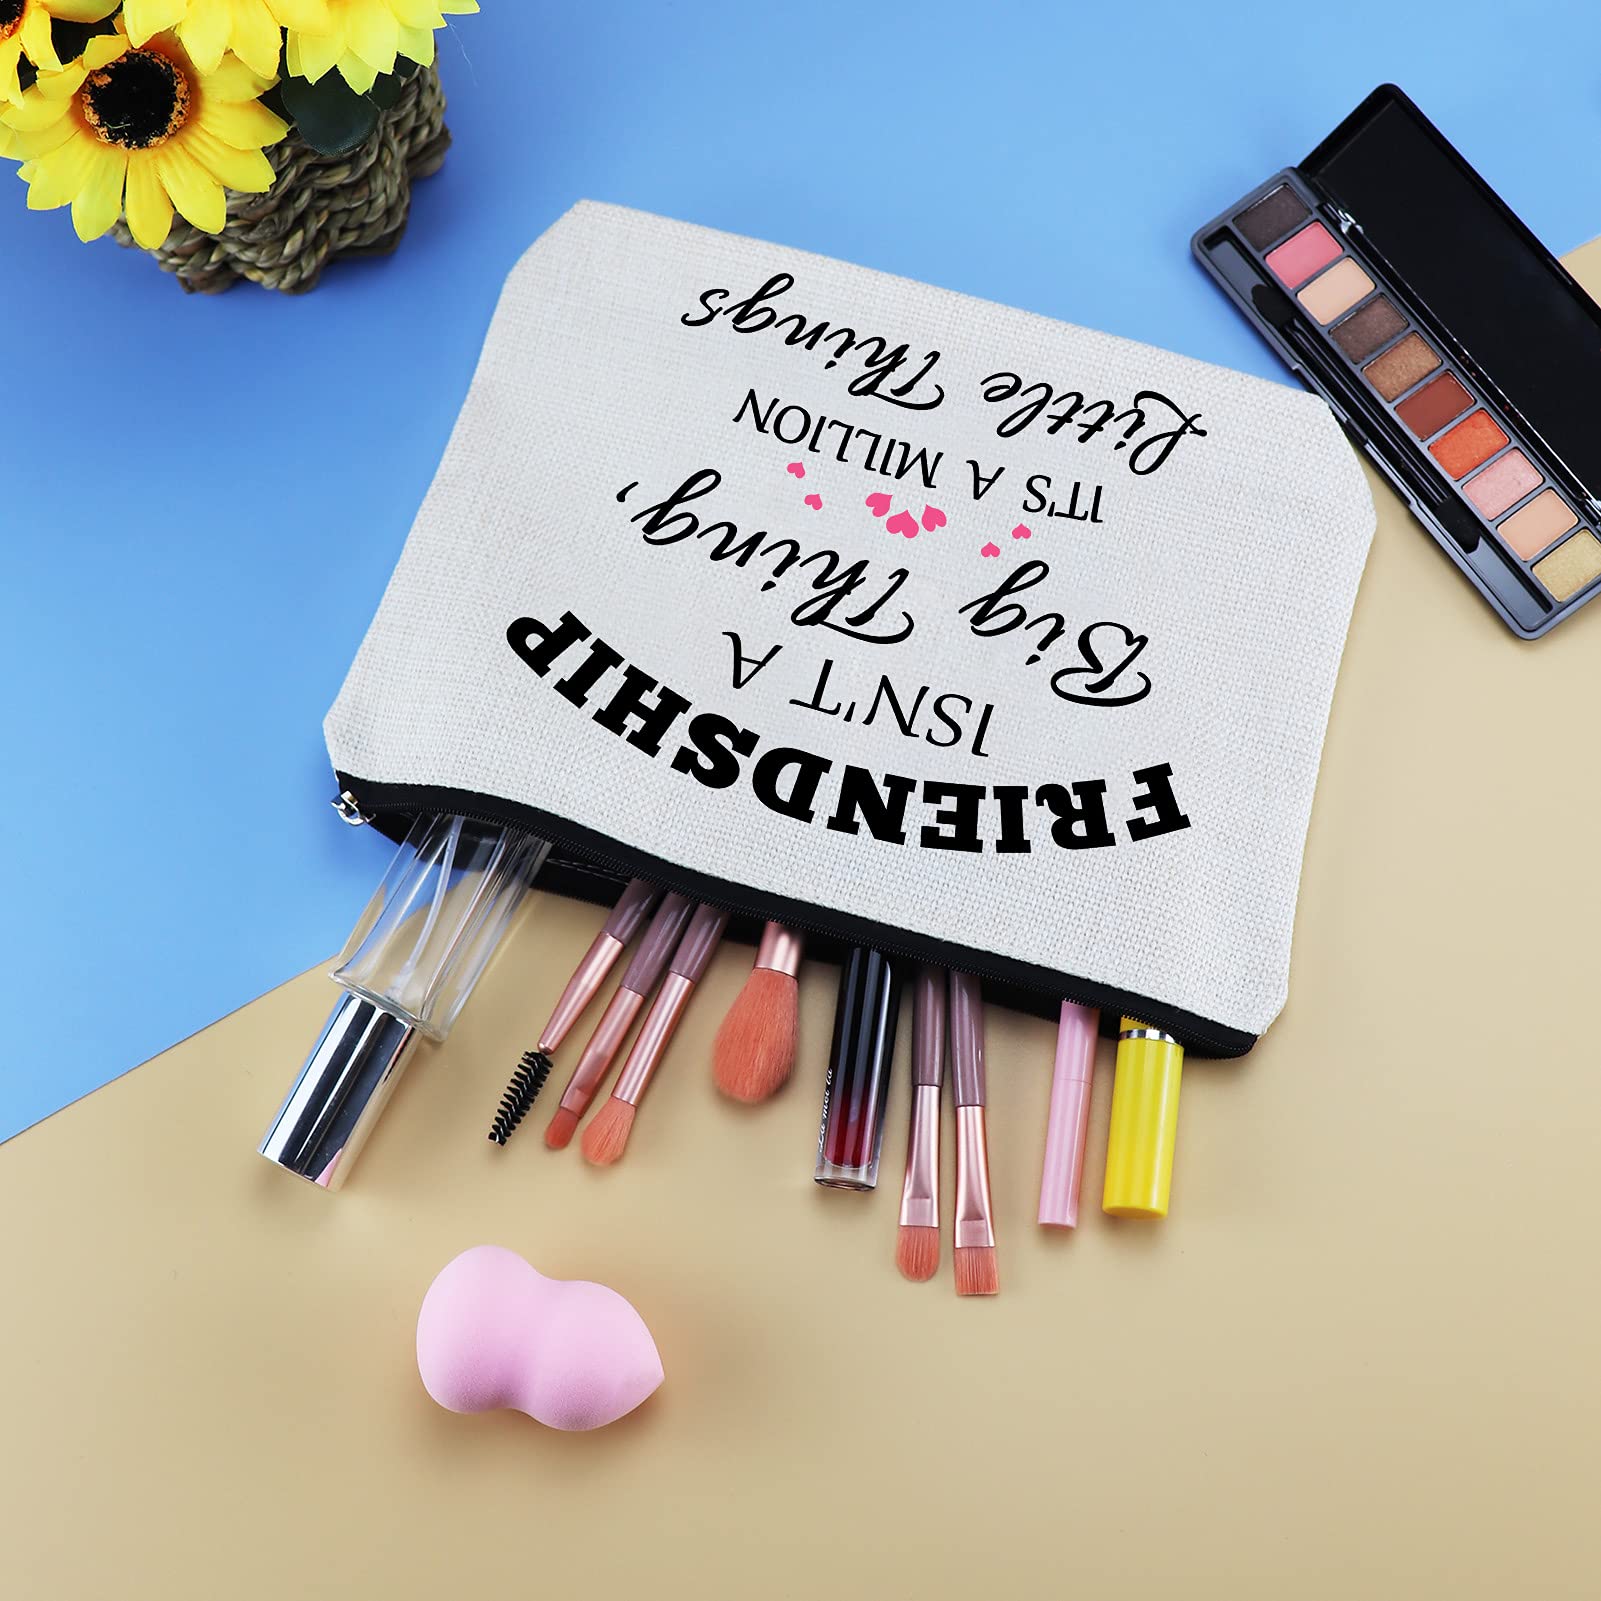 FRIENDSHIP
ISN'T A
Big Thing,
IT'S A MILLION
Little Things
La mei la